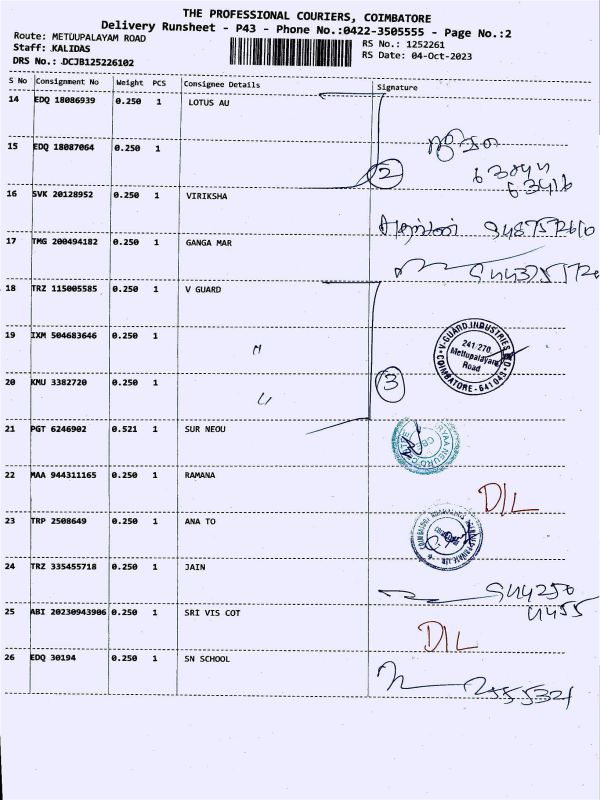 THE PROFESSIONAL COURIERS, COIMBATORE
Delivery Runsheet - P43 - Phone No.:0422-3505555 - Page No.:2
Route: METUUPALAYAM ROAD
RS No.: 1252261
Staff: KALIDAS
RS Date: 04-Oct-2023
DRS No.: DCJB125226102
S No Consignment No Weight PCS Consignee Details Signature
14 EDQ 18086939 0.250 1 LOTUS AU
15 EDQ 18087064 0.250 1
2
16 SVK 20128952 0.250 1 VIRIKSHA
17 TMG 200494182 0.250 1 GANGA MAR
18 TRZ 115005585 0.250 1 V GUARD
19 IXM 504683646 0.250 1 "
V-GUARD INDUSTRIES
241/270
Mettupalayam
Road
COIMBATORE - 641043
20 KMU 3382720 0.250 1 "
3
21 PGT 6246902 0.521 1 SUR NEOU
22 MAA 944311165 0.250 1 RAMANA D/L
23 TRP 2508649 0.250 1 ANA TO
24 TRZ 335455718 0.250 1 JAIN
25 ABI 20230943906 0.250 1 SRI VIS COT D/L
26 EDQ 30194 0.250 1 SN SCHOOL